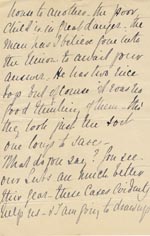 house to another. the poor
child is in great danger. the
man has I believe gone into
the Union to await your
answer. He has two nice
boys but of course it wants
good thinking of them - tho'
they look just the sort
one longs to save.
What do you say? You see
our Subs are much better
this year - these cases evidently
help us - & I am going to